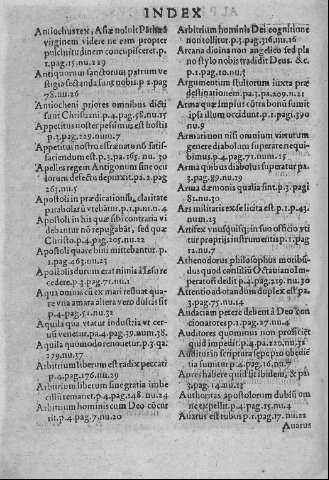 INDEX
Antiochus rex, Asiæ noluit
virginem videre ne eam propter
pulchritudinem concupisceret.p.
1.pag.15.nu.219
Antiquorum sanctorum patrum ve
stigia sectanda sunt nobis p.1 pag
78.nu.16
Antiocheni priores omnibus dicti
sunt Christiani.p.4.pag.58.nu.15
Appetitus noster pessimus est hostis
p.3.pag.129.num.7
Appetitui nostro effrænato nō satis-
faciendum est.p.3.pa.165.nu.30
Apelles regem Antigonum sine ocu
lorum defectu depinxit.p.2.pag
263.nu.5
Apostoli in prædicationib. claritate
parabolarū vtebātur.p.1.p.nu.4
Apostoli in his quæ sibi contraria vi
debantur nō repugnabāt, sed quæ
Christo.p.4.pag.205.nu.22
Apostoli quare bini mittebantur.p.
1.pag.463.nu.23
Apostolis durum erat nimis à Iesu re
cedere.p.3.pag.71.nu.1
Aqua omnis cum ex mari fluat quare
vna amara altera vero dulcis sit
p.4.pag.51.nu.32
Aquila qua vtatur industria vt cer-
uū venetur.pa.4.pag.39.num.38.
Aquila quomodo renouetur.p.3.qa.
279.nu.37
Arbitrium liberum est radix peccati
p.4.pag.176.nu.29
Arbitrium liberum sine gratia imbe
cille remanet.p.4.pag.148.nu.24
Arbitrium hominis cum Deo cōcur
rit.p.4.pag.7.nu.20
Arbitrium hominis Dei cognitione
non tollitur.p.3.pag.316.nu.16
Arcana diuina non angelico sed pla
no stylo nobis tradidit Deus.&c.
p.1.pag.10.nu.3
Argumentum stultorum iuxta præ
destinationem.pa.3.pa.209.n.21
Arma quæ impius cōtra bonū sumit
ipsum occidunt.p.1.pag.390
nu.9
Armari non nisi omnium virtutum
genere diabolum superare nequi-
bimus.p.4.pag.71.num.15
Arma quibus diabolus superatur pa.
3.pag.89.nu.19
Arma dæmonis qualia sint.p.3.pagi
81.nu.30
Ars militaris ex se licita est p.1.p.43.
num.23
Artifex vnusquisq; in suo officio vti
tur proprijs instrumentis p.1.pag
12.nu.7
Athenodorus philosophus moribus-
dus quod consiliū Octauiano Im-
peratori dedit p.4.pag.219.nu.30
Attentio ad orandum duplex est pa.
3.pag.75.nu.14
Audaciam petere debent à Deo con
cionatores p.1.pag.17.nu.4
Auditores quominus non proficiēt
quid impedit.p.4.pa.220.nu.32
Auditurus scripturā sępe pro obedie
tia sumitur p.4.pag.16.nu.7
Aures habere quid sit ibidem, & pa
3.pag.14.nu.13
Authoritas apostolorum dubiū om
ne expellit.p.4.pag.25.nu.4
Auarus est rubus p.1.pag.17.nu.22
Auarus